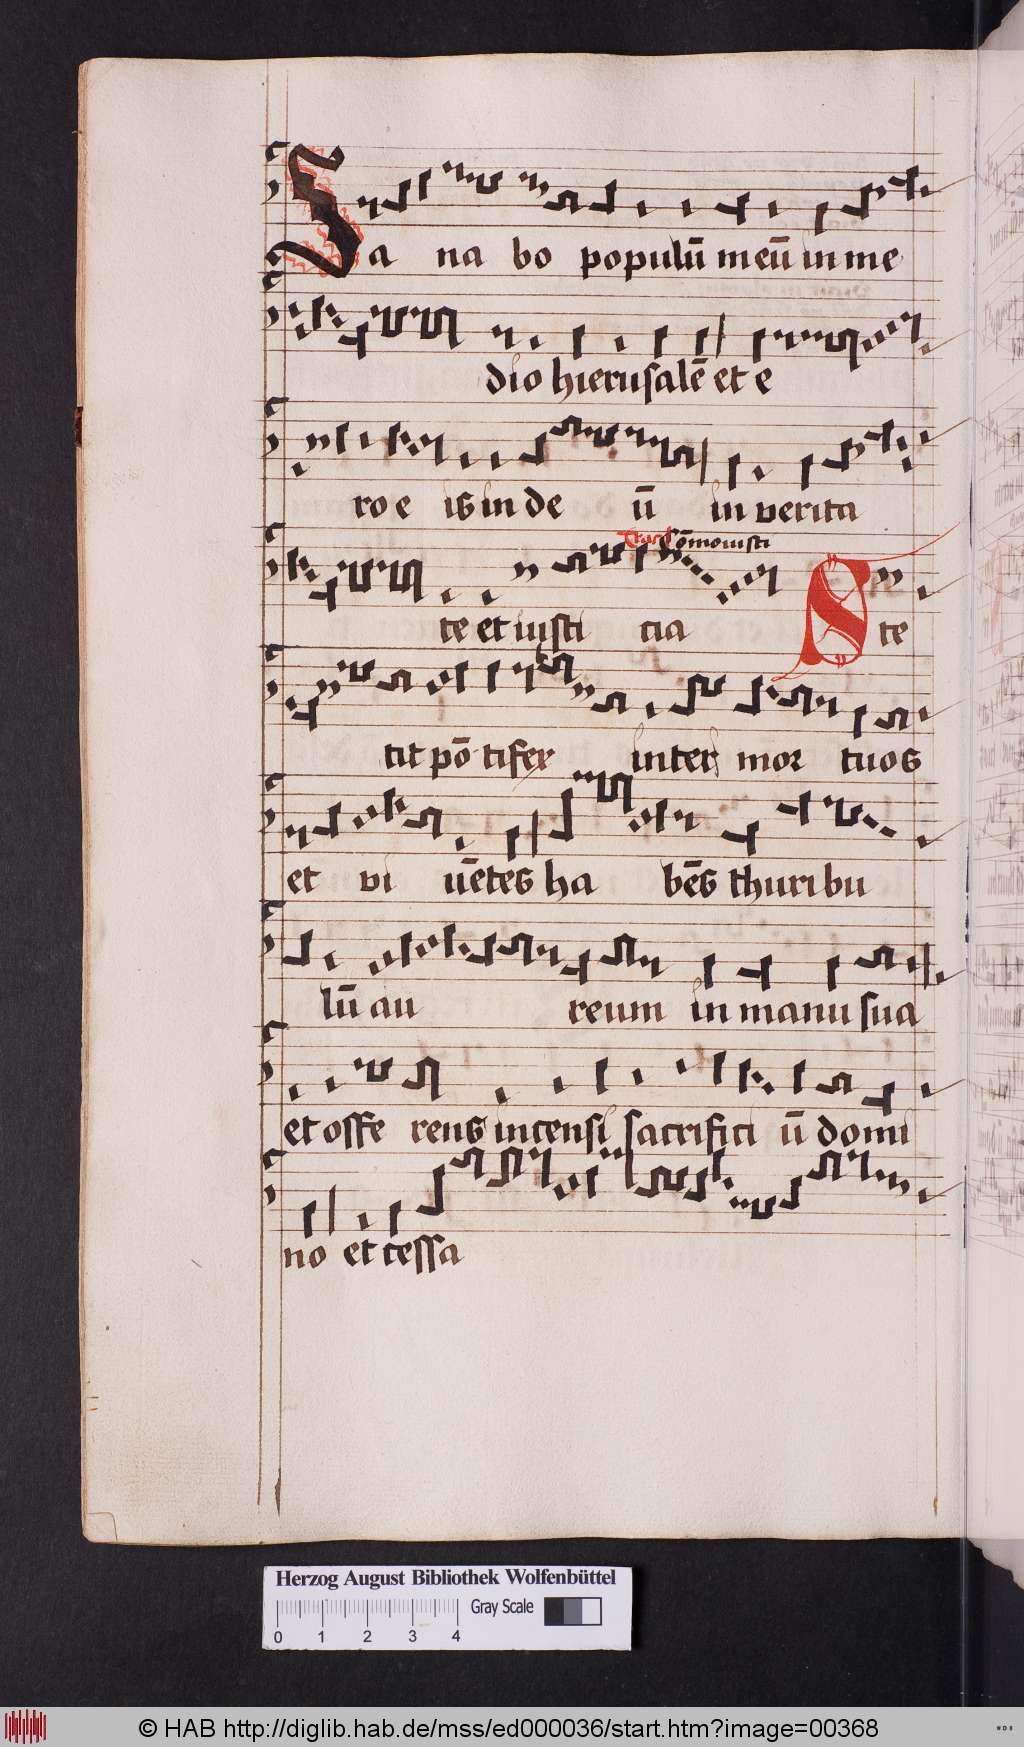 Sa na bo populū meū in me
dio hierusalē et e
ro e is in de ū in verita
Tract Cōmouisti
te et iusti cia Ste
tit pō tifex inter mor tuos
et vi uētes ha bēs thuribu
lū au reum in manu sua
et offe rens incensi sacrifici ū domi
no et cessa
Herzog August Bibliothek Wolfenbüttel
Gray Scale
0 1 2 3 4
© HAB http://diglib.hab.de/mss/ed000036/start.htm?image=00368